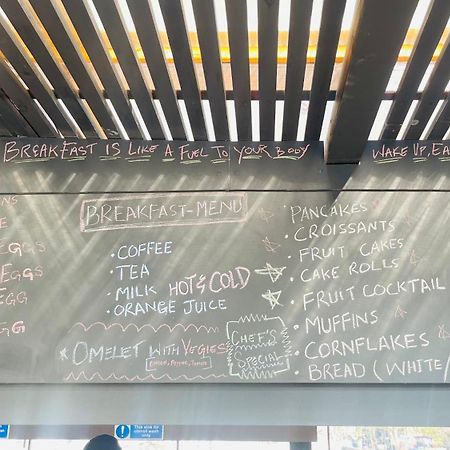 BREAKFAST IS LIKE A FUEL TO YOUR BODY
WAKE UP, EA
NS
E
EGGS
EGGS
EGG
GG
BREAKFAST-MENU
• COFFEE
• TEA
• MILK HOT & COLD
• ORANGE JUICE
OMELET WITH VEGIES
CHEF'S
SPECIAL
• PANCAKES
• CROISSANTS
• FRUIT CAKES
• CAKE ROLLS
• FRUIT COCKTAIL
• MUFFINS
• CORNFLAKES
• BREAD (WHITE/